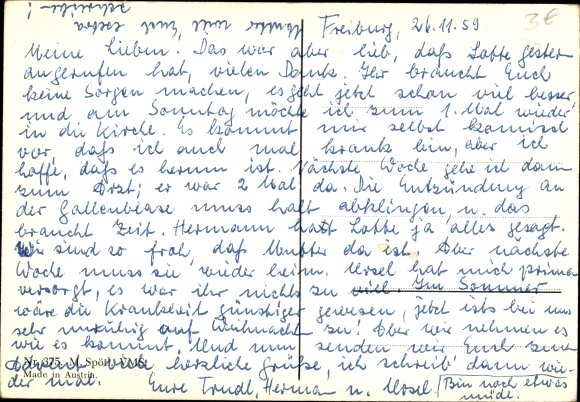 Freiburg, 26.11.59
3€
Meine Lieben. Das war aber lieb, daß Lotte gestern
angerufen hat, vielen Dank. Ihr braucht Euch
keine Sorgen machen, es geht jetzt schon viel besser
und am Sonntag möchte ich zum 1. Mal wieder
in die Kirche. Es kommt mir selbst komisch
vor, daß ich auch mal krank bin, aber ich
hoffe, daß es herum ist. Nächste Woche gehe ich dann
zum Arzt; er war 2 Mal da. Die Entzündung an
der Gallenblase muss halt abklingen, u. das
braucht Zeit. Hermann hat Lotte ja alles gesagt.
Wir sind so froh, daß Mutter da ist. Aber nächste
Woche muss sie wieder heim. Ursel hat mich prima
versorgt, es war ihr nichts zu viel. Im Sommer
wäre die Krankheit günstiger gewesen, jetzt ists bei uns
sehr unruhig auf Weihnacht zu! Aber wir nehmen es
wie es kommt. Und nun senden wir Euch zum
Advent viele herzliche Grüße, ich schreib' dann wie-
der mal. Eure Trudl, Herman u. Ursel
Bin noch etwas
müde.
Nr. 375 M. Spötl, VMS
Made in Austria
wird Euch extra
schreiben!